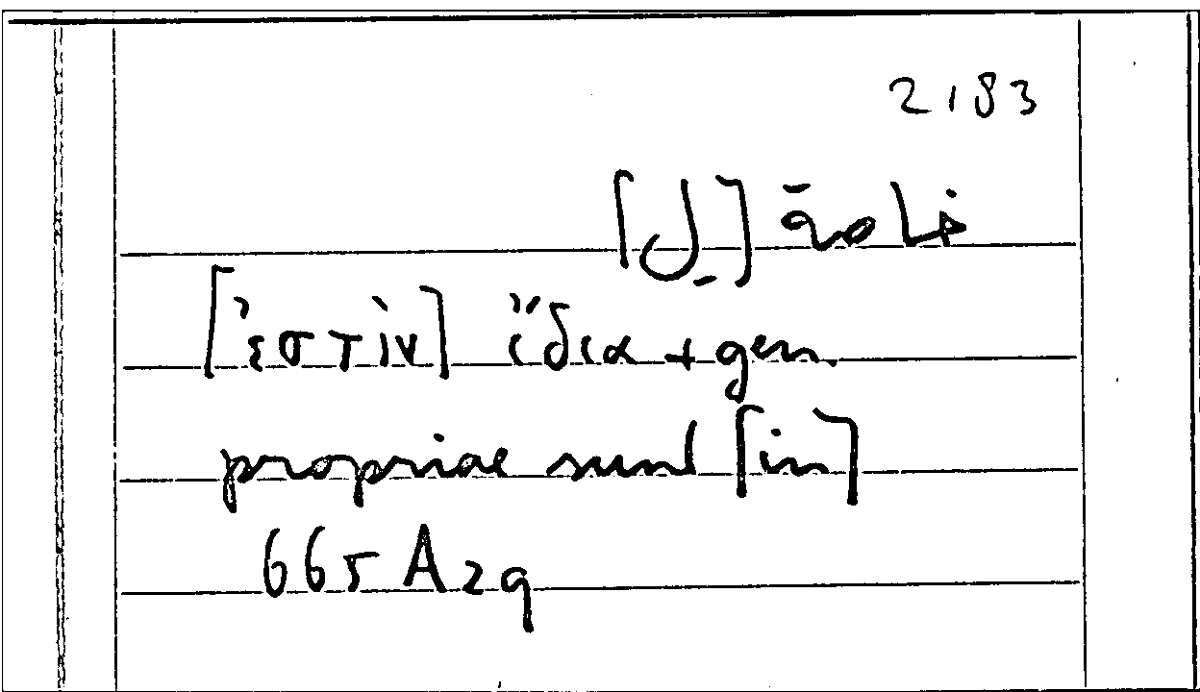 2183
خاصة [لِ]
[ἐστὶν] ἴδια + gen.
propriae sunt [in]
665 A 29